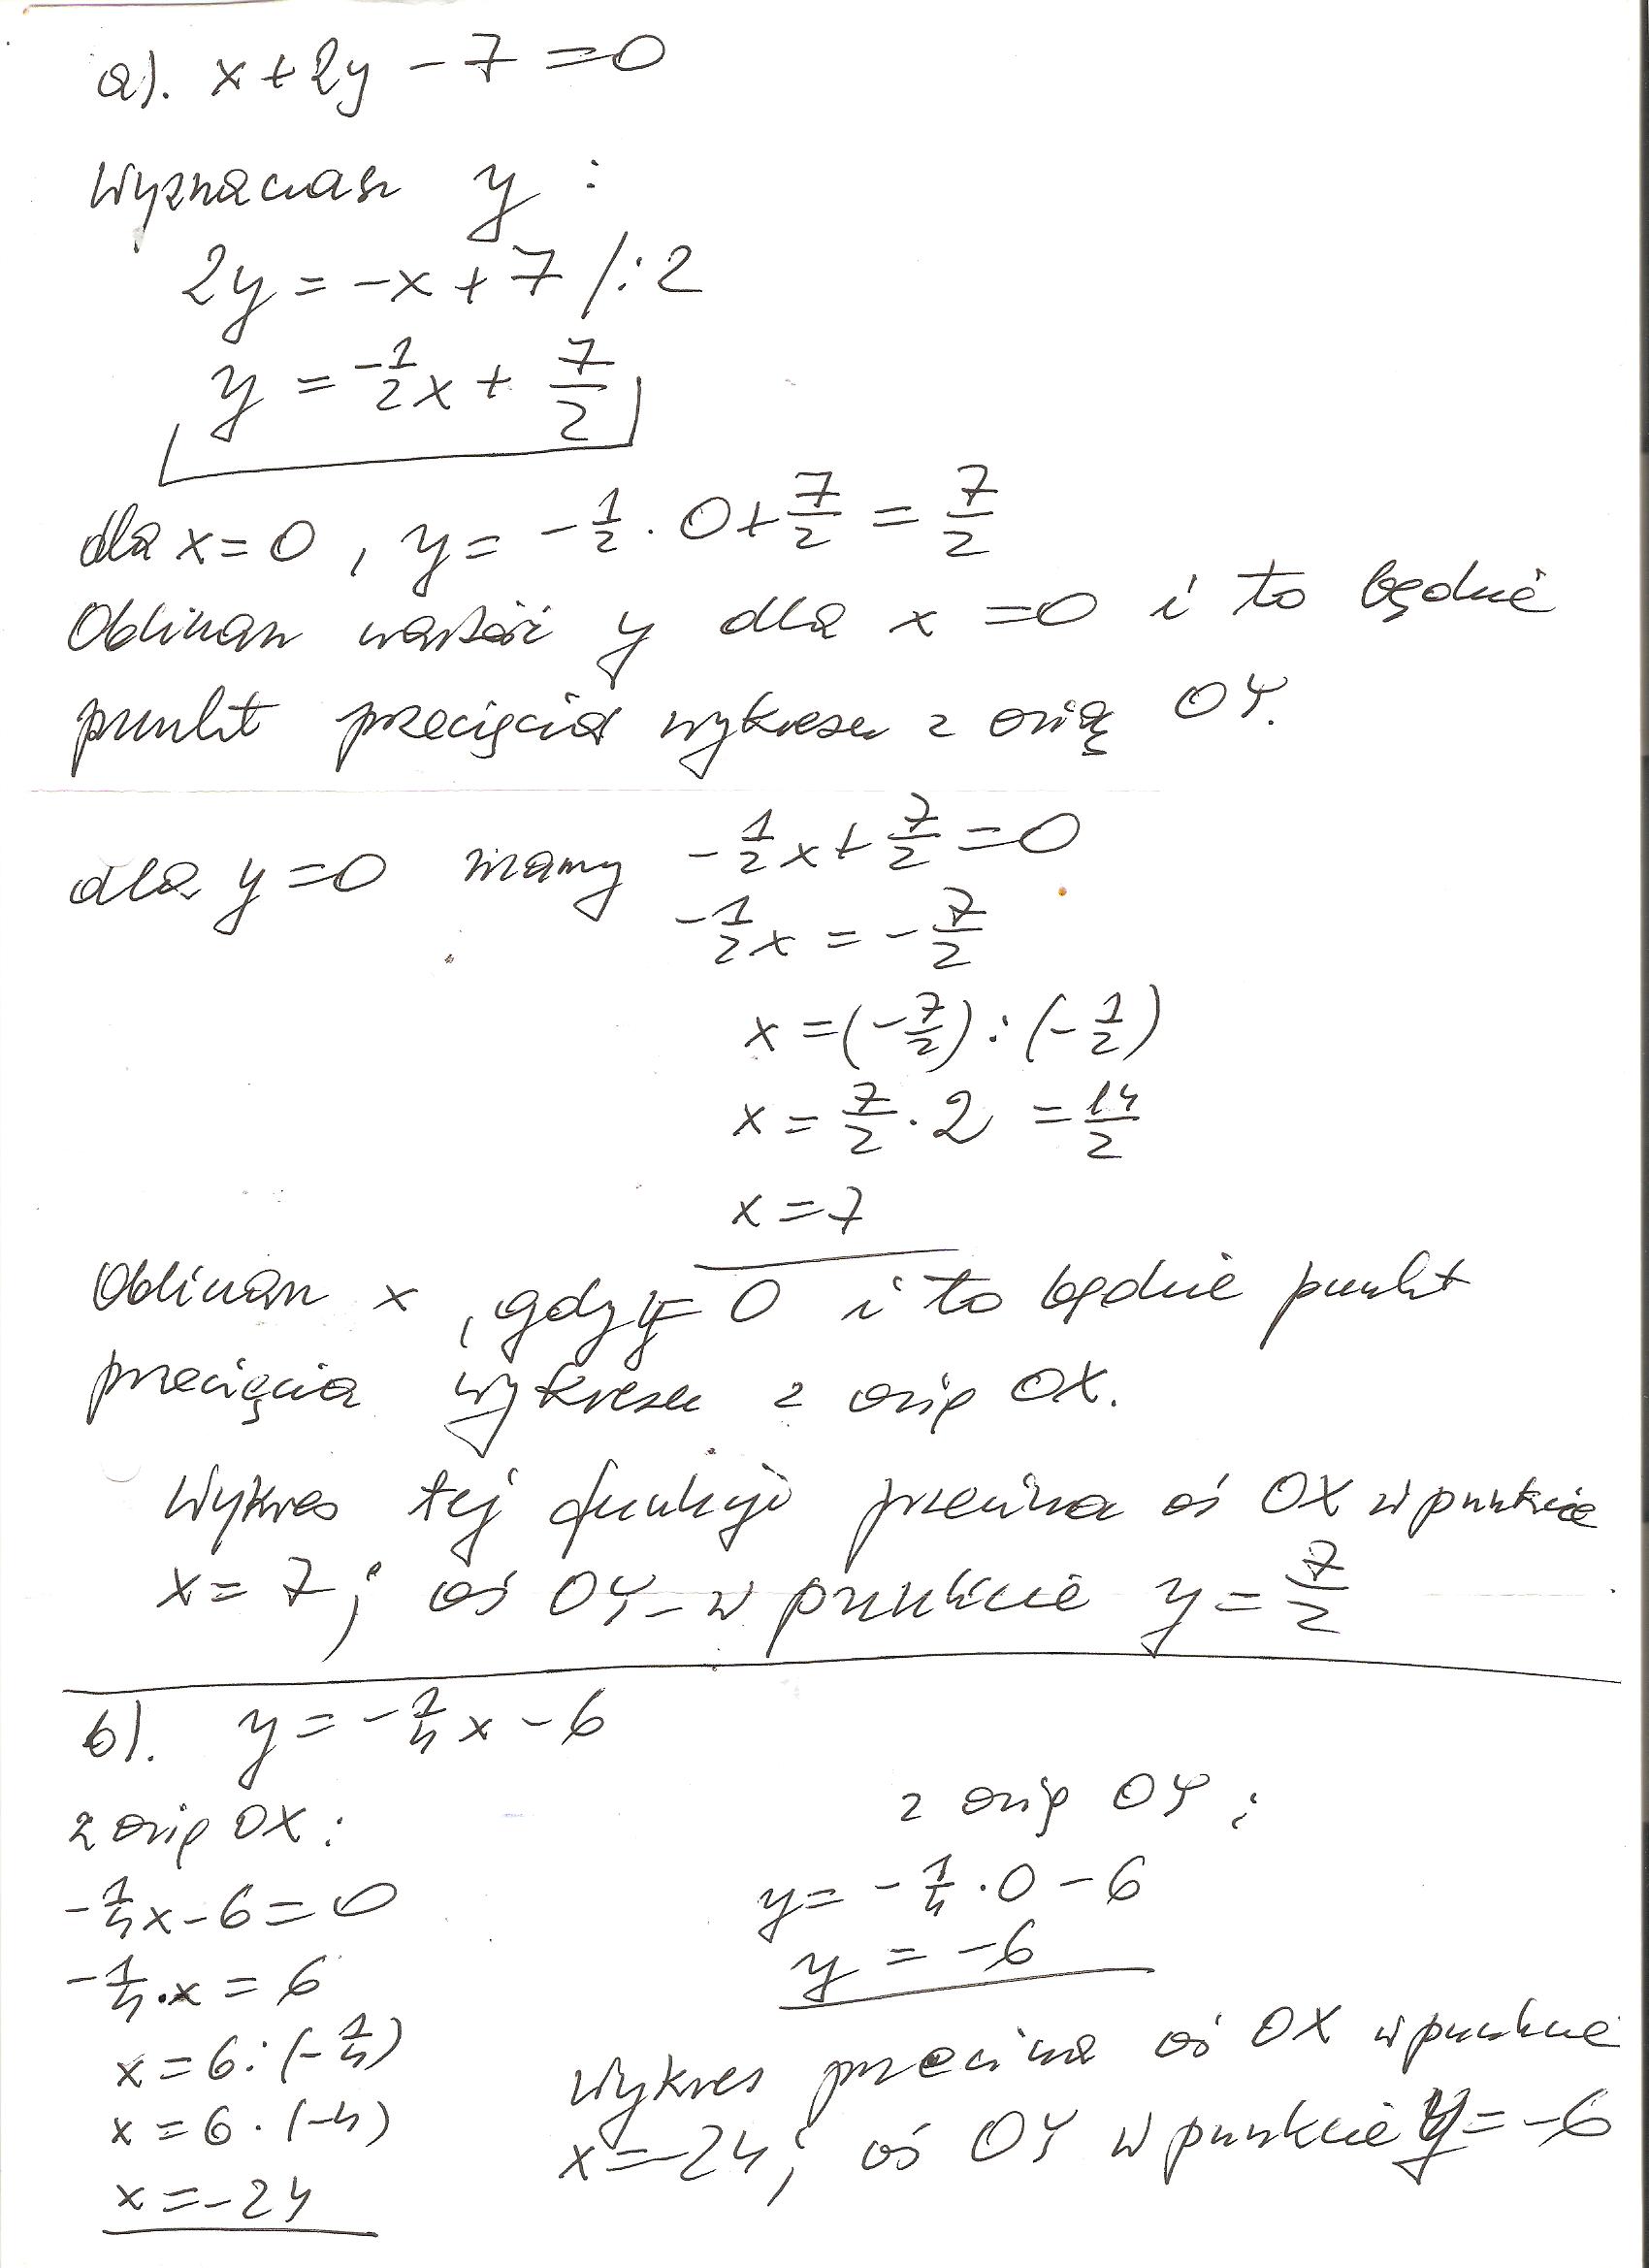 a). x+2y-7=0
Wyznaczasz y:
2y=-x+7 /:2
y=-1/2x+7/2
dla x=0, y=-1/2·0+7/2=7/2
Obliczasz wartość y dla x=0 i to będzie
punkt przecięcia wykresu z osią OY.
dla y=0 mamy -1/2x+7/2=0
-1/2x=-7/2
x=(-7/2):(-1/2)
x=7/2·2=14/2
x=7
Obliczasz x, gdy y=0 i to będzie punkt
przecięcia wykresu z osią OX.
Wykres tej funkcji przecina oś OX w punkcie
x=7; oś OY-w punkcie y=7/2
b). y=-1/4x-6
z osią OX:
-1/4x-6=0
-1/4·x=6
x=6:(-1/4)
x=6·(-4)
x=-24
z osią OY:
y=-1/4·0-6
y=-6
Wykres przecina oś OX w punkcie
x=-24; oś OY w punkcie y=-6